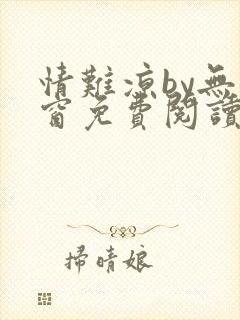 情難涼by無
窗免費閱讀
掃晴娘